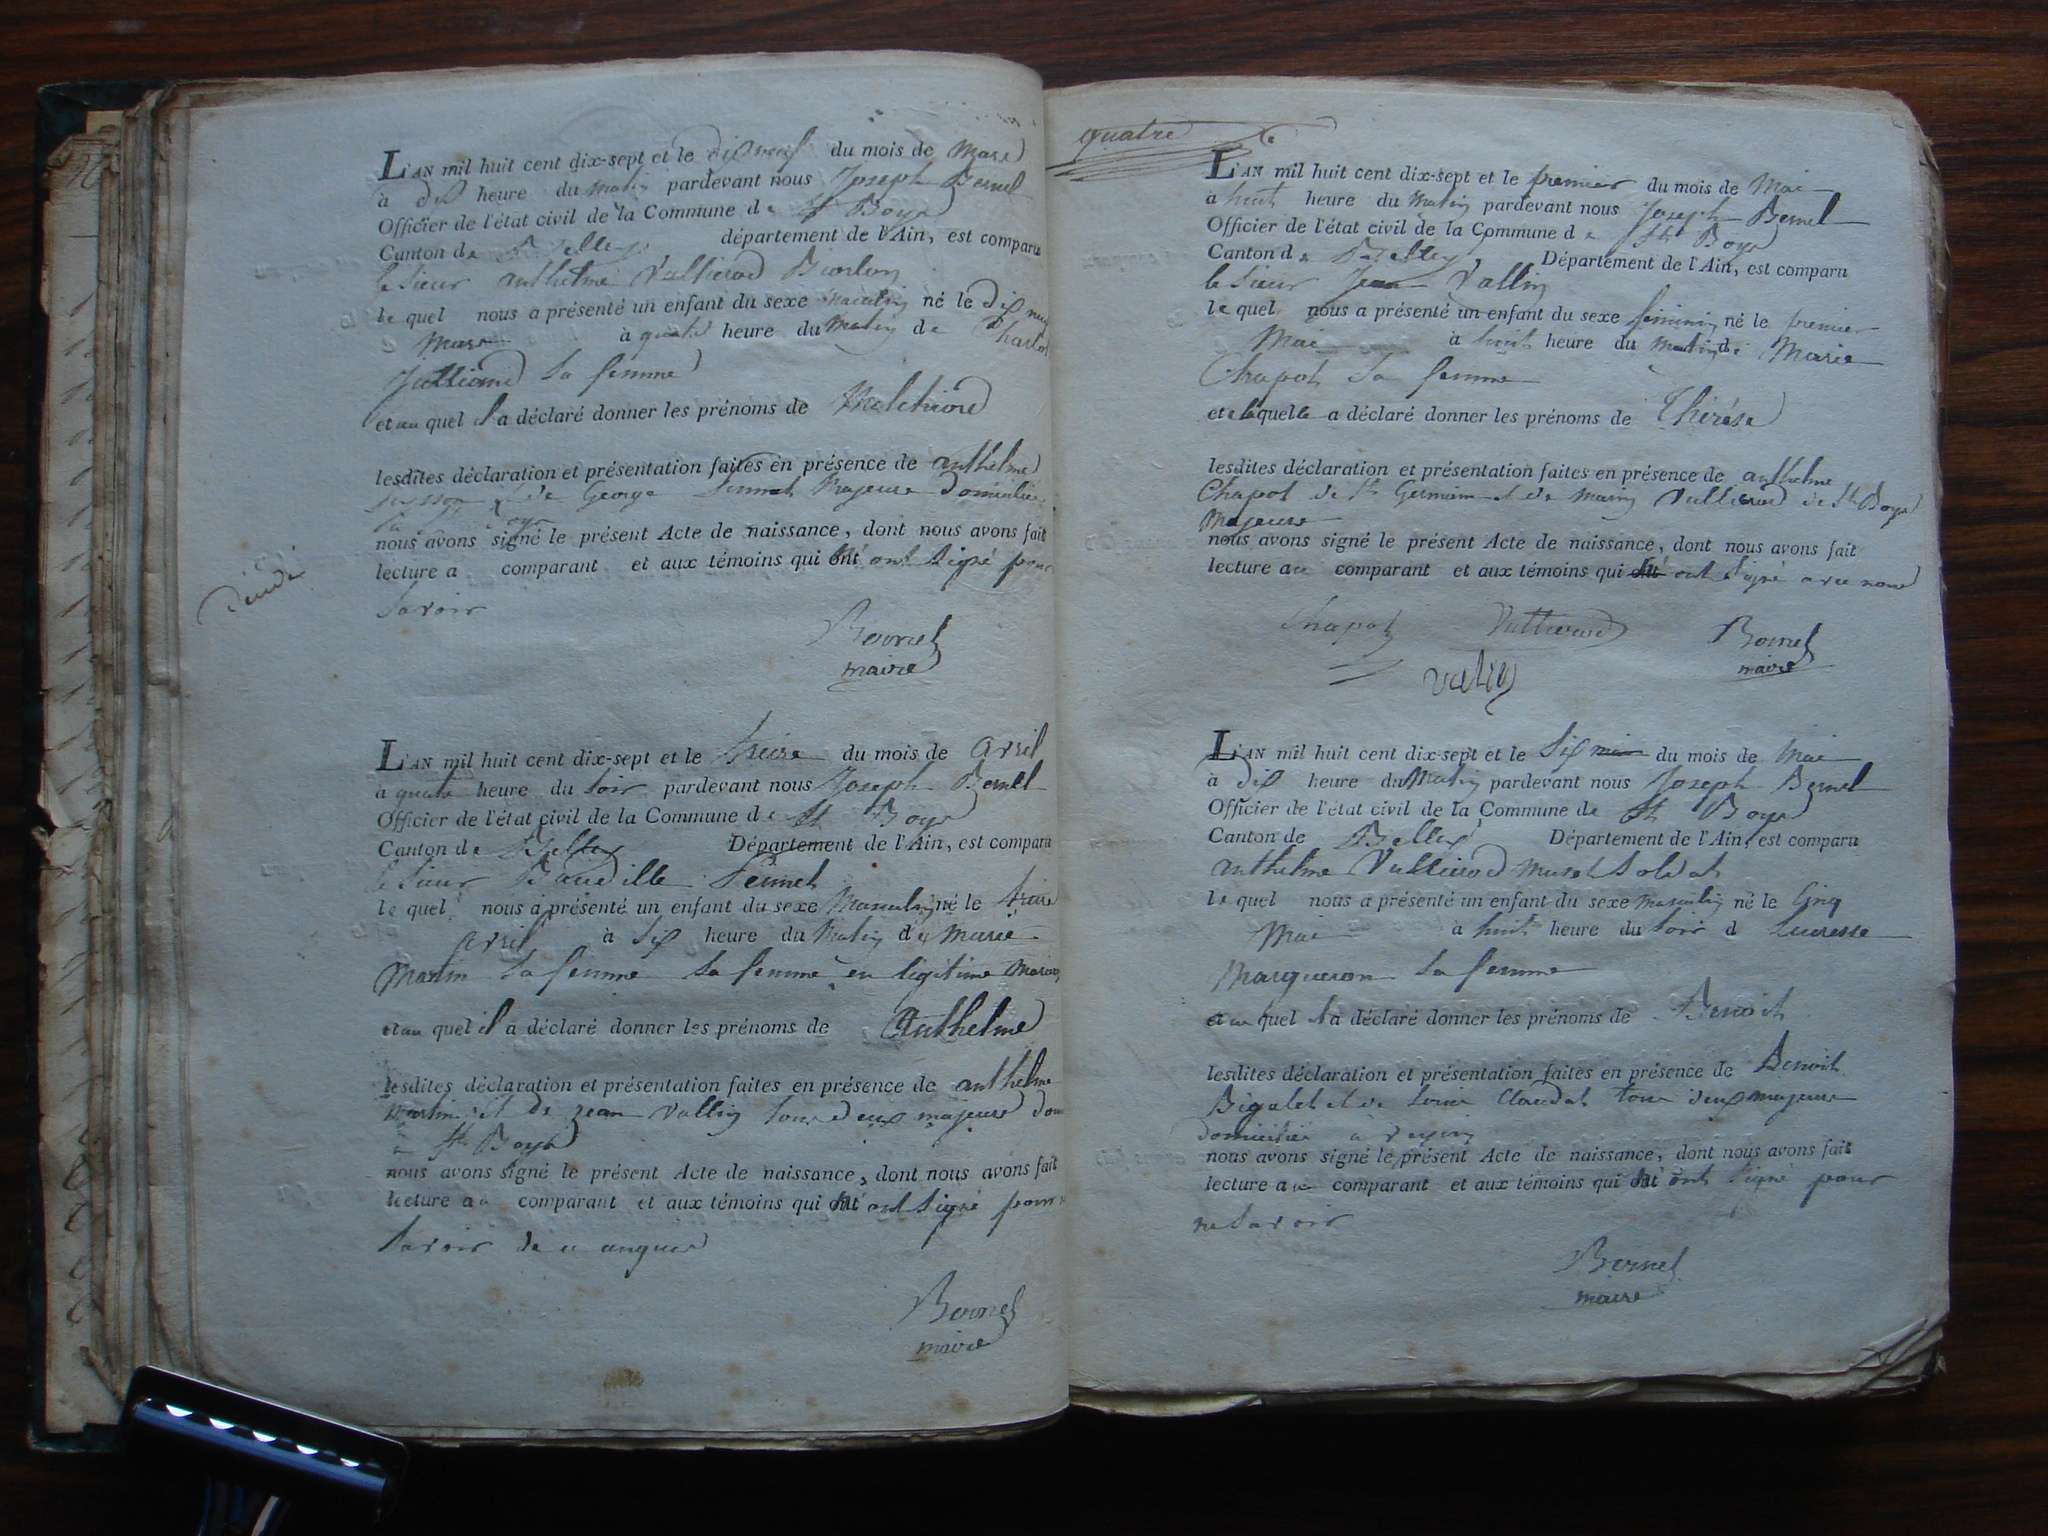 L'AN mil huit cent dix-sept et le dix neuf du mois de Mars
à dix heure du matin pardevant nous Joseph Bernel
Officier de l'état civil de la Commune de St Boys
Canton de Belley département de l'Ain, est comparu
le Sieur anthelme Vullierod Burlon
le quel nous a présenté un enfant du sexe masculin né le dix neuf
Mars à quatre heure du matin de Charlot
Julliand Sa femme
et au quel il a déclaré donner les prénoms de Melchiord
lesdites déclaration et présentation faites en présence de anthelme
et de George Sennet Majeurs domiciliés
nous avons signé le présent Acte de naissance, dont nous avons fait
lecture a comparant et aux témoins qui ont signé pour
Savoir
Bernel
maire
L'AN mil huit cent dix-sept et le treize du mois de avril
à quatre heure du Soir pardevant nous Joseph Bernel
Officier de l'état civil de la Commune de St Boys
Canton de Belley Département de l'Ain, est comparu
le Sieur Baudille Sennet
le quel nous a présenté un enfant du sexe Masculin né le treize
avril à Six heure du Matin de Marie
Martin Sa femme Sa femme en légitime Mariag
et au quel il a déclaré donner les prénoms de Anthelme
lesdites déclaration et présentation faites en présence de anthelme
Martin et de Jean Vallin tous deux majeurs dom
à St Boys
nous avons signé le présent Acte de naissance, dont nous avons fait
lecture au comparant et aux témoins qui ont signé pour
Savoir de ce
Bernel
maire
quatre
L'AN mil huit cent dix-sept et le premier du mois de Mai
à huit heure du Matin pardevant nous Joseph Bernel
Officier de l'état civil de la Commune de St Boys
Canton de Belley Département de l'Ain, est comparu
le Sieur Jean Vallin
le quel nous a présenté un enfant du sexe féminin né le premier
Mai à huit heure du Matin de Marie
Chapot Sa femme
et a laquelle a déclaré donner les prénoms de Thérése
lesdites déclaration et présentation faites en présence de anthelme
Chapot de St Germain et de Marin Vullierod de St Boys
Majeurs
nous avons signé le présent Acte de naissance, dont nous avons fait
lecture au comparant et aux témoins qui ont Signé avec nous
Chapot Vullierod Bernel
maire
valin
L'AN mil huit cent dix-sept et le Six mai du mois de Mai
à dix heure du Matin pardevant nous Joseph Bernel
Officier de l'état civil de la Commune de St Boys
Canton de Belley Département de l'Ain, est comparu
anthelme Vullierod Musot Soldat
le quel nous a présenté un enfant du sexe masculin né le Cinq
Mai à huit heure du Soir d Lucresse
Margueron Sa femme
et au quel il a déclaré donner les prénoms de Benoit
lesdites déclaration et présentation faites en présence de Benoit
Bigalet et de Louis Claudat tous deux majeurs
domicilié à
nous avons signé le présent Acte de naissance, dont nous avons fait
lecture au comparant et aux témoins qui ont Signé pour
ne Savoir
Bernel
maire